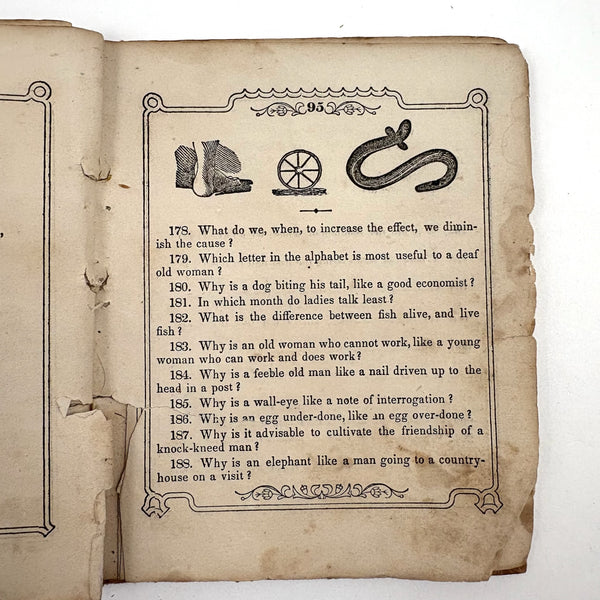 95
178. What do we, when, to increase the effect, we dimin-
ish the cause?
179. Which letter in the alphabet is most useful to a deaf
old woman?
180. Why is a dog biting his tail, like a good economist?
181. In which month do ladies talk least?
182. What is the difference between fish alive, and live
fish?
183. Why is an old woman who cannot work, like a young
woman who can work and does work?
184. Why is a feeble old man like a nail driven up to the
head in a post?
185. Why is a wall-eye like a note of interrogation?
186. Why is an egg under-done, like an egg over-done?
187. Why is it advisable to cultivate the friendship of a
knock-kneed man?
188. Why is an elephant like a man going to a country-
house on a visit?